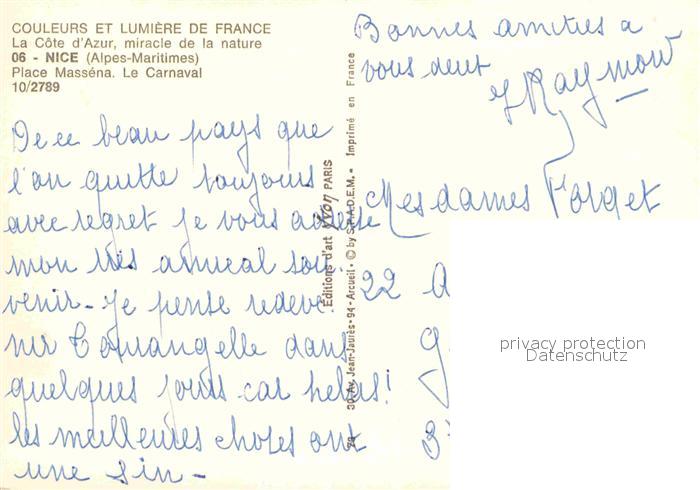 COULEURS ET LUMIÈRE DE FRANCE
La Côte d'Azur, miracle de la nature
06 - NICE (Alpes-Maritimes)
Place Masséna. Le Carnaval
10/2789
De ce beau pays que
l'on quitte toujours
avec regret je vous adresse
mon très amical sou
venir - Je pense redeve
nir dans
quelques jours car helas!
les meilleures choses ont
une fin -
Bonnes amitiés a
vous deux
Raymond
Mesdames Forget
22 A
9.
3
Éditions d'art Yvon PARIS
30, Av. Jean-Jaurès • 94 - Arcueil • © by S.P.A.D.E.M. • Imprimé en France
privacy protection
Datenschutz